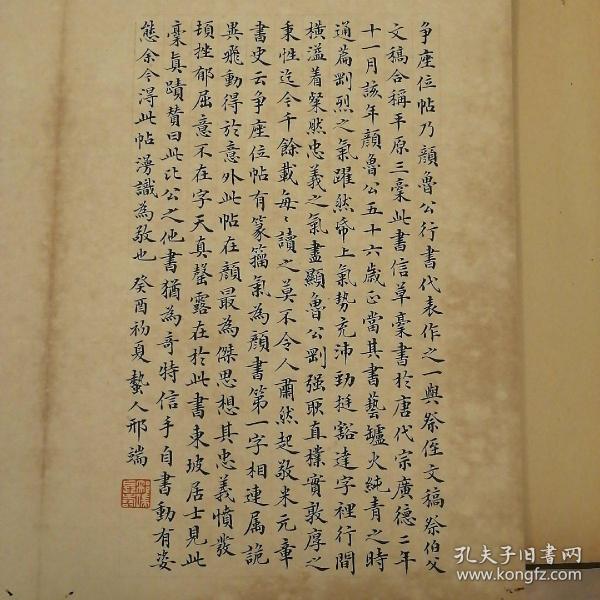 争座位帖乃顏魯公行書代表作之一與祭侄文稿祭伯父
文稿合稱平原三稾此書信草稾書於唐代宗廣德二年
十一月該年顏魯公五十六歲正當其書藝罏火純青之時
通篇剛烈之氣躍然帋上氣勢充沛勁挺豁達字裡行間
橫溢着粲然忠義之氣盡顯魯公剛强耿直樸實敦厚之
秉性迄今千餘載每讀之莫不令人肅然起敬米元章
書史云争座位帖有篆籀氣為顏書第一字相連属詭
異飛動得於意外此帖在顏最為傑思想其忠義憤發
頓挫郁屈意不在字天真罄露在於此書東坡居士見此
稾真蹟贊曰此比公之他書猶為奇特信手自書動有姿
態余今得此帖湧識為敬也 癸酉初夏 蟄人邢端
孔夫子旧書网
www.kongfz.com